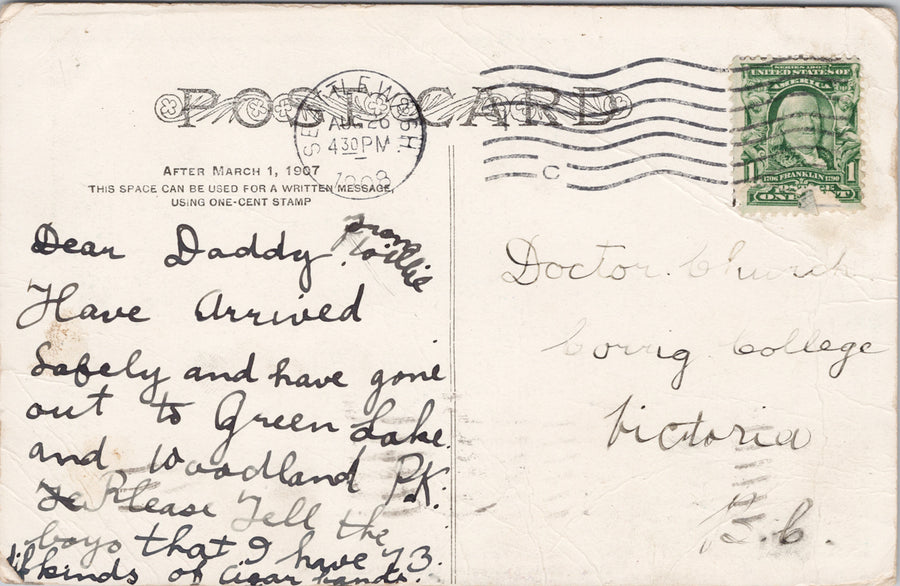 POST CARD
SEATTLE WASH.
AUG 26
4 30 PM
1908
C
SERIES 1902
UNITED STATES OF
AMERICA
1 1
1706 FRANKLIN 1790
POSTAGE
ONE
AFTER MARCH 1, 1907
THIS SPACE CAN BE USED FOR A WRITTEN MESSAGE,
USING ONE-CENT STAMP
Dear Daddy
from
Willie
Have Arrived
Safely and have gone
out to Green Lake
and Woodland PK.
Please Tell the
boys that I have 73
kinds of cigar bands.
Doctor Church
Corrig College
Victoria
B.C.